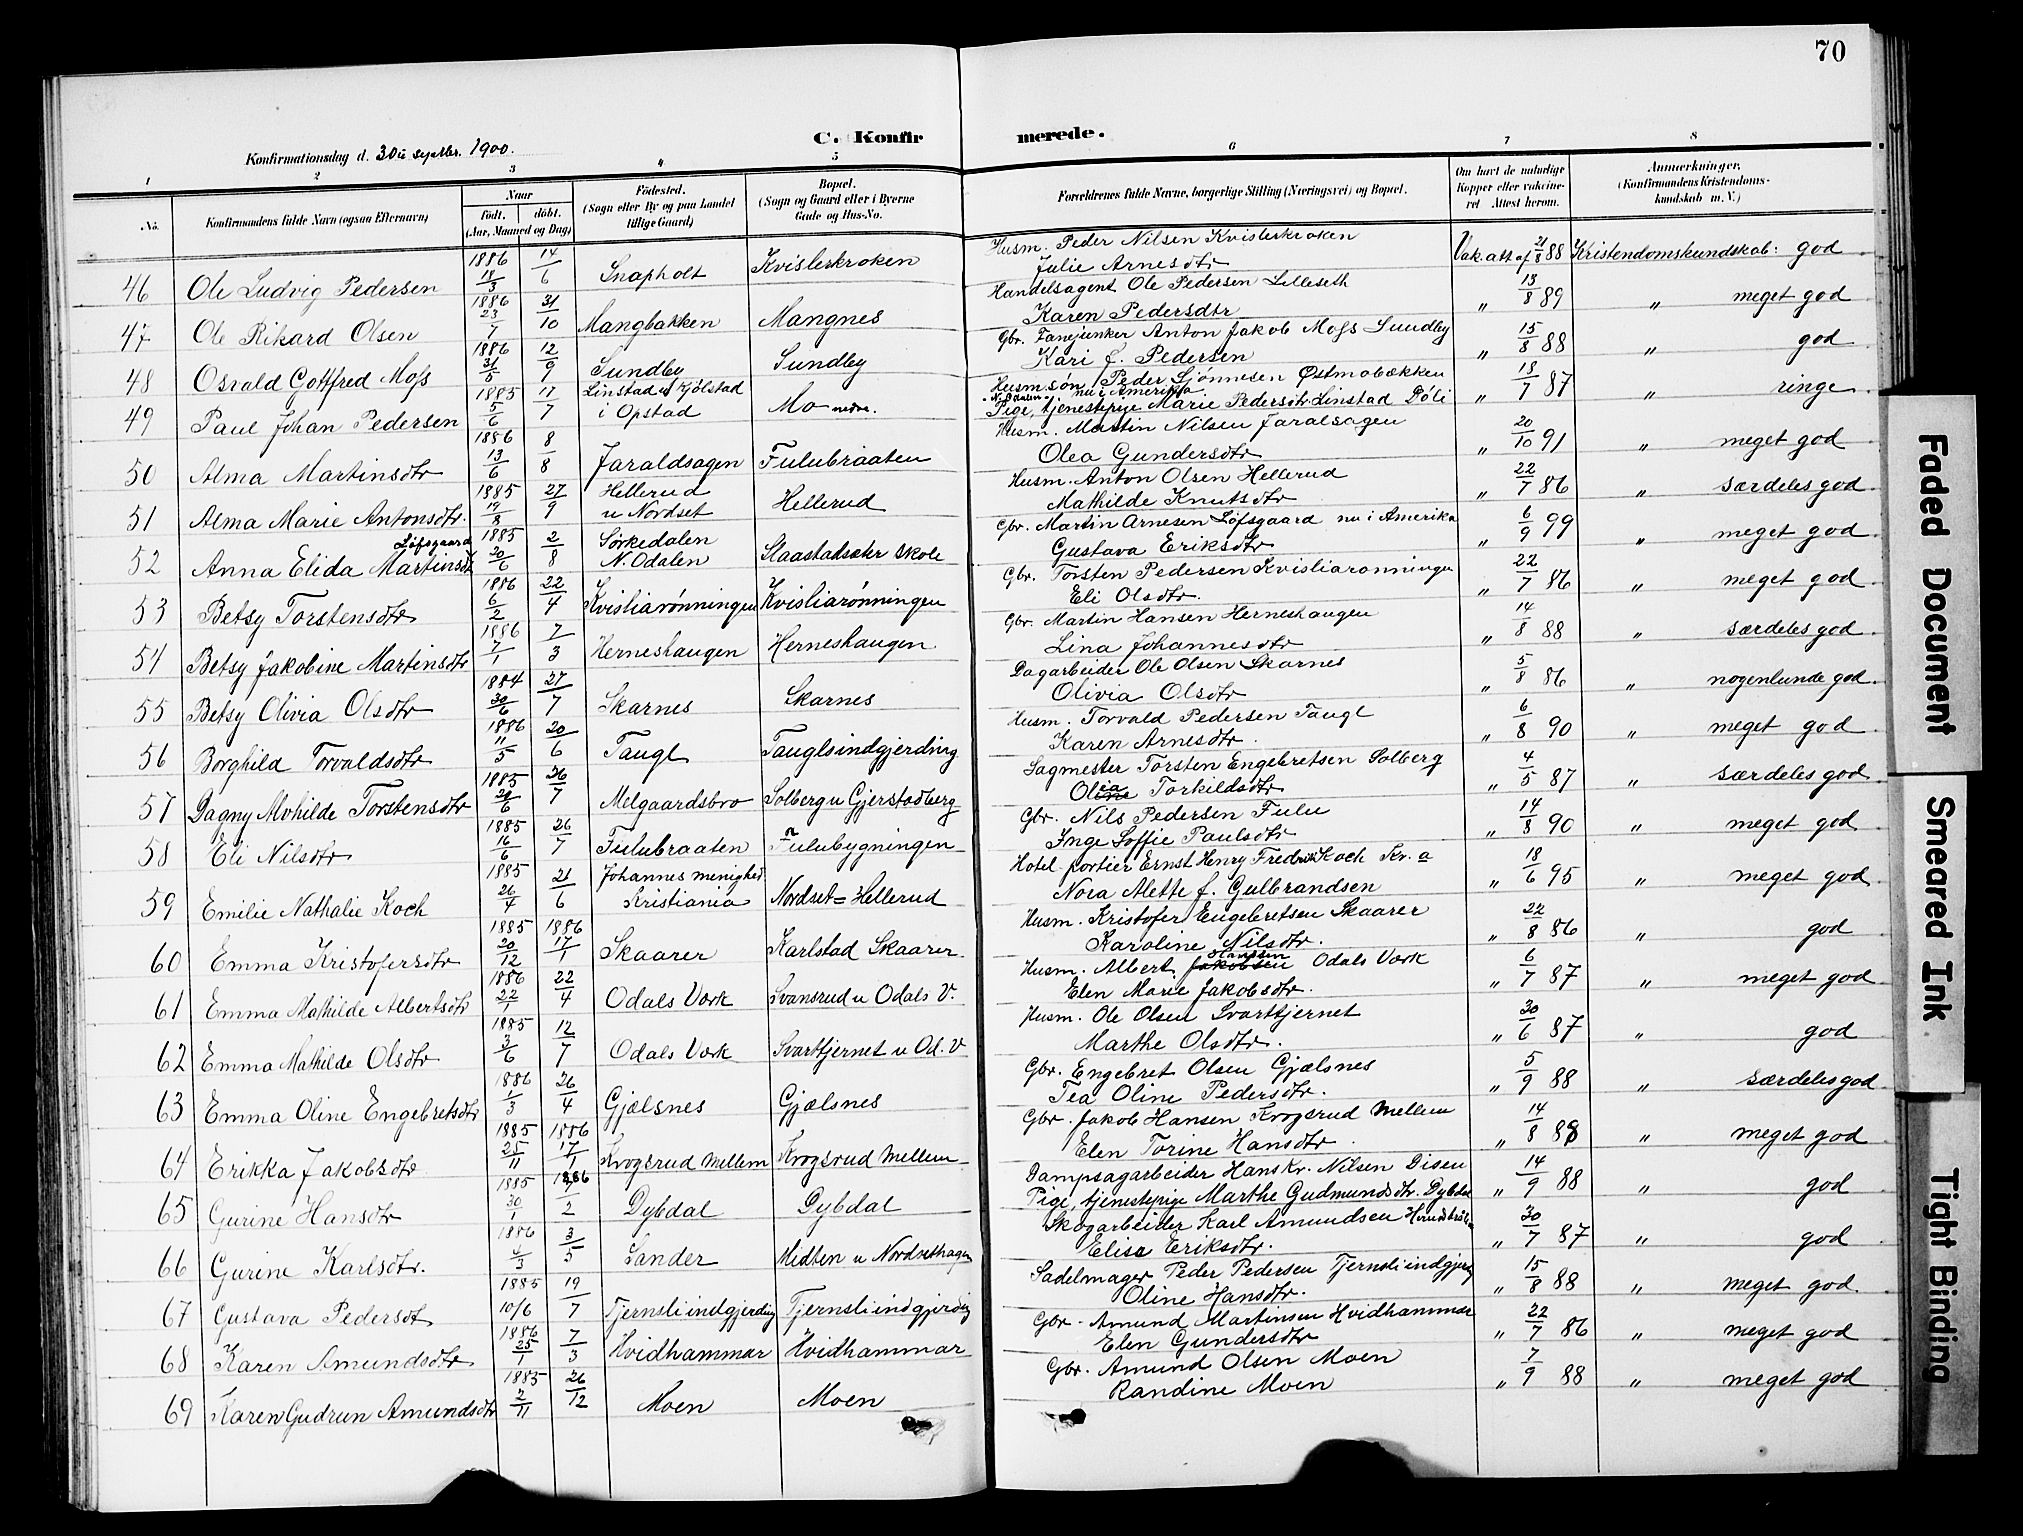 70
C. Konfirmerede.
Konfirmationsdag d. 30te septbr. 1900.
1 2 3 4 5 6 7 8
No.
Konfirmandens fulde Navn (ogsaa Efternavn)
Naar
født. døbt.
(Aar, Maaned og Dag)
Fødested.
(Sogn eller By og paa Landet
tillige Gaard)
Bopæl.
(Sogn og Gaard eller i Byerne
Gade og Hus-No.
Forældrenes fulde Navne, borgerlige Stilling (Næringsvei) og Bopæl.
Om havt de naturlige
Kopper eller vakcine-
ret Attest herom.
Anmerkninger.
(Konfirmandens Kristendoms-
kundskab m. V.)
46 Ole Ludvig Pedersen 1886 18/3 14/6 Snapholt Kvislerkroken Husm. Peder Nilsen Kvislerkroken
Julie Arnesdtr Vak.att. af 21/8 88 Kristendomskundskab: god
47 Ole Rikard Olsen 1886 23/7 31/10 Mangbakken Mangnes Handelsagent Ole Pedersen Lilleseth
Karen Pedersdtr " 13/8 89 " meget god
48 Osvald Gottfred Moss 1886 31/5 12/9 Sundby Sundby Gbr. Fanejunker Anton Jakob Moss Sundby
Kari f. Pedersen " 15/8 88 " god
49 Paul Johan Pedersen 1885 5/6 11/7 Linstad u Kjølstad
i Opstad Mo nedre. Husm.søn Peder Sjønnesen Østmobækken
N. Odalen nu i Amerika
Pige, tjenestepige Marie Pedersdtr Linstad Døli " 18/7 87 " ringe
50 Alma Martinsdtr 1886 13/6 8/8 Jaraldsagen Fulubraaten Husm. Martin Nilsen Jaralsagen
Olea Gundersdtr " 20/10 91 " meget god
51 Alma Marie Antonsdtr. 1885 19/8 27/9 Hellerud
u Nordset Hellerud Husm. Anton Olsen Hellerud
Mathilde Knutsdtr " 22/7 86 " særdeles god
Løfsgaard
52 Anna Elida Martinsdtr 1885 20/6 2/8 Sørkedalen
N. Odalen Slaastadsæter skole Gbr. Martin Arnesen Løfsgaard nu i Amerika
Gustava Eriksdtr " 6/9 99 " meget god
53 Betsy Torstensdtr 1886 6/2 22/4 Kvisliarønningen Kvisliarønningen Gbr. Torsten Pedersen Kvisliarønningen
Eli Olsdtr. " 22/7 86 " meget god
54 Betsy Jakobine Martinsdtr 1886 7/1 7/3 Herneshaugen Herneshaugen Gbr. Martin Hansen Herneshaugen
Lina Johannesdtr " 14/8 88 " særdeles god
55 Betsy Olivia Olsdtr 1884 30/6 27/7 Skarnes Skarnes Dagarbeider Ole Olsen Skarnes
Olivia Olsdtr " 5/8 86 " nogenlunde god
56 Borghild Torvaldsdtr 1886 11/5 20/6 Taugl Tauglsindgjerding Husm. Torvald Pedersen Taugl
Karen Arnesdtr. " 6/8 90 " meget god
57 Dagny Mohilde Torstensdtr 1885 29/6 26/7 Melgaardsbro Solberg u Gjerstadberg Sagmester Torsten Engebretsen Solberg
Olia Torkildsdtr " 4/5 87 " særdeles god
58 Eli Nilsdtr 1885 16/6 26/7 Fulubraaten Fulubygningen Gbr. Nils Pedersen Fulu
Inge Soffie Paulsdtr " 14/8 90 " meget god
59 Emilie Nathalie Koch 1885 26/4 21/6 Johannes menighed
Kristiania Nordset = Hellerud Hotel portier Ernst Henry Fredrik Koch Kr.a
Nora Alette f. Gulbrandsen " 18/6 95 " meget god
60 Emma Kristofersdtr 1885 20/12 1886 17/1 Skaarer Karlstad Skaarer. Husm. Kristofer Engebretsen Skaarer
Karoline Nilsdtr. " 22/8 86 " god
61 Emma Mathilde Albertsdtr 1886 22/1 22/4 Odals Værk Svansrud u Odals V. Husm. Albert Jakobsen Hanssen Odals Værk
Elen Marie Jakobsdtr. " 6/7 87 " meget god
62 Emma Mathilde Olsdtr 1885 3/6 12/7 Odals Værk Svarttjernet u Od. V Husm. Ole Olsen Svarttjernet
Marthe Olsdtr. " 30/6 87 " god
63 Emma Oline Engebretsdtr 1886 1/3 26/4 Gjælsnes Gjælsnes Gbr. Engebret Olsen Gjælsnes
Tea Oline Pedersdtr. " 5/9 88 " særdeles god
64 Erikka Jakobsdtr 1885 25/11 1886 17/1 Krogsrud mellem Krogsrud mellem Gbr. Jakob Hansen Krogsrud mellem
Elen Torine Hansdtr " 14/8 88 " meget god
65 Gurine Hansdtr 1885 30/1 1886 /2 Dybdal Dybdal Dampsagarbeider Hans Kr. Nilsen Disen
Pige, tjenestepige Marthe Gudmundsdtr. Dybdal " 14/9 88 " god
66 Gurine Karlsdtr. 1886 4/3 3/5 Sander Midten u Nordsethagen Skogarbeider Karl Amundsen
Elise Eriksdtr. " 30/7 87 " god
67 Gustava Pedersdt 1885 10/6 19/7 Tjernsliindgjerding Tjernsliindgjerdig Sadelmager Peder Pedersen Tjernsliindgjerdg
Oline Hansdtr. " 15/8 88 " meget god.
68 Karen Amundsdtr 1886 25/1 7/3 Hvidhammar Hvidhammar Gbr. Amund Martinsen Hvidhammar
Elen Gundersdtr " 22/7 86 " meget god
69 Karen Gudrun Amundsdtr 1885 2/11 26/12 Moen Moen Gbr. Amund Olsen Moen
Randine Moen " 7/9 88 " meget god
Faded Document
Smeared Ink
Tight Binding